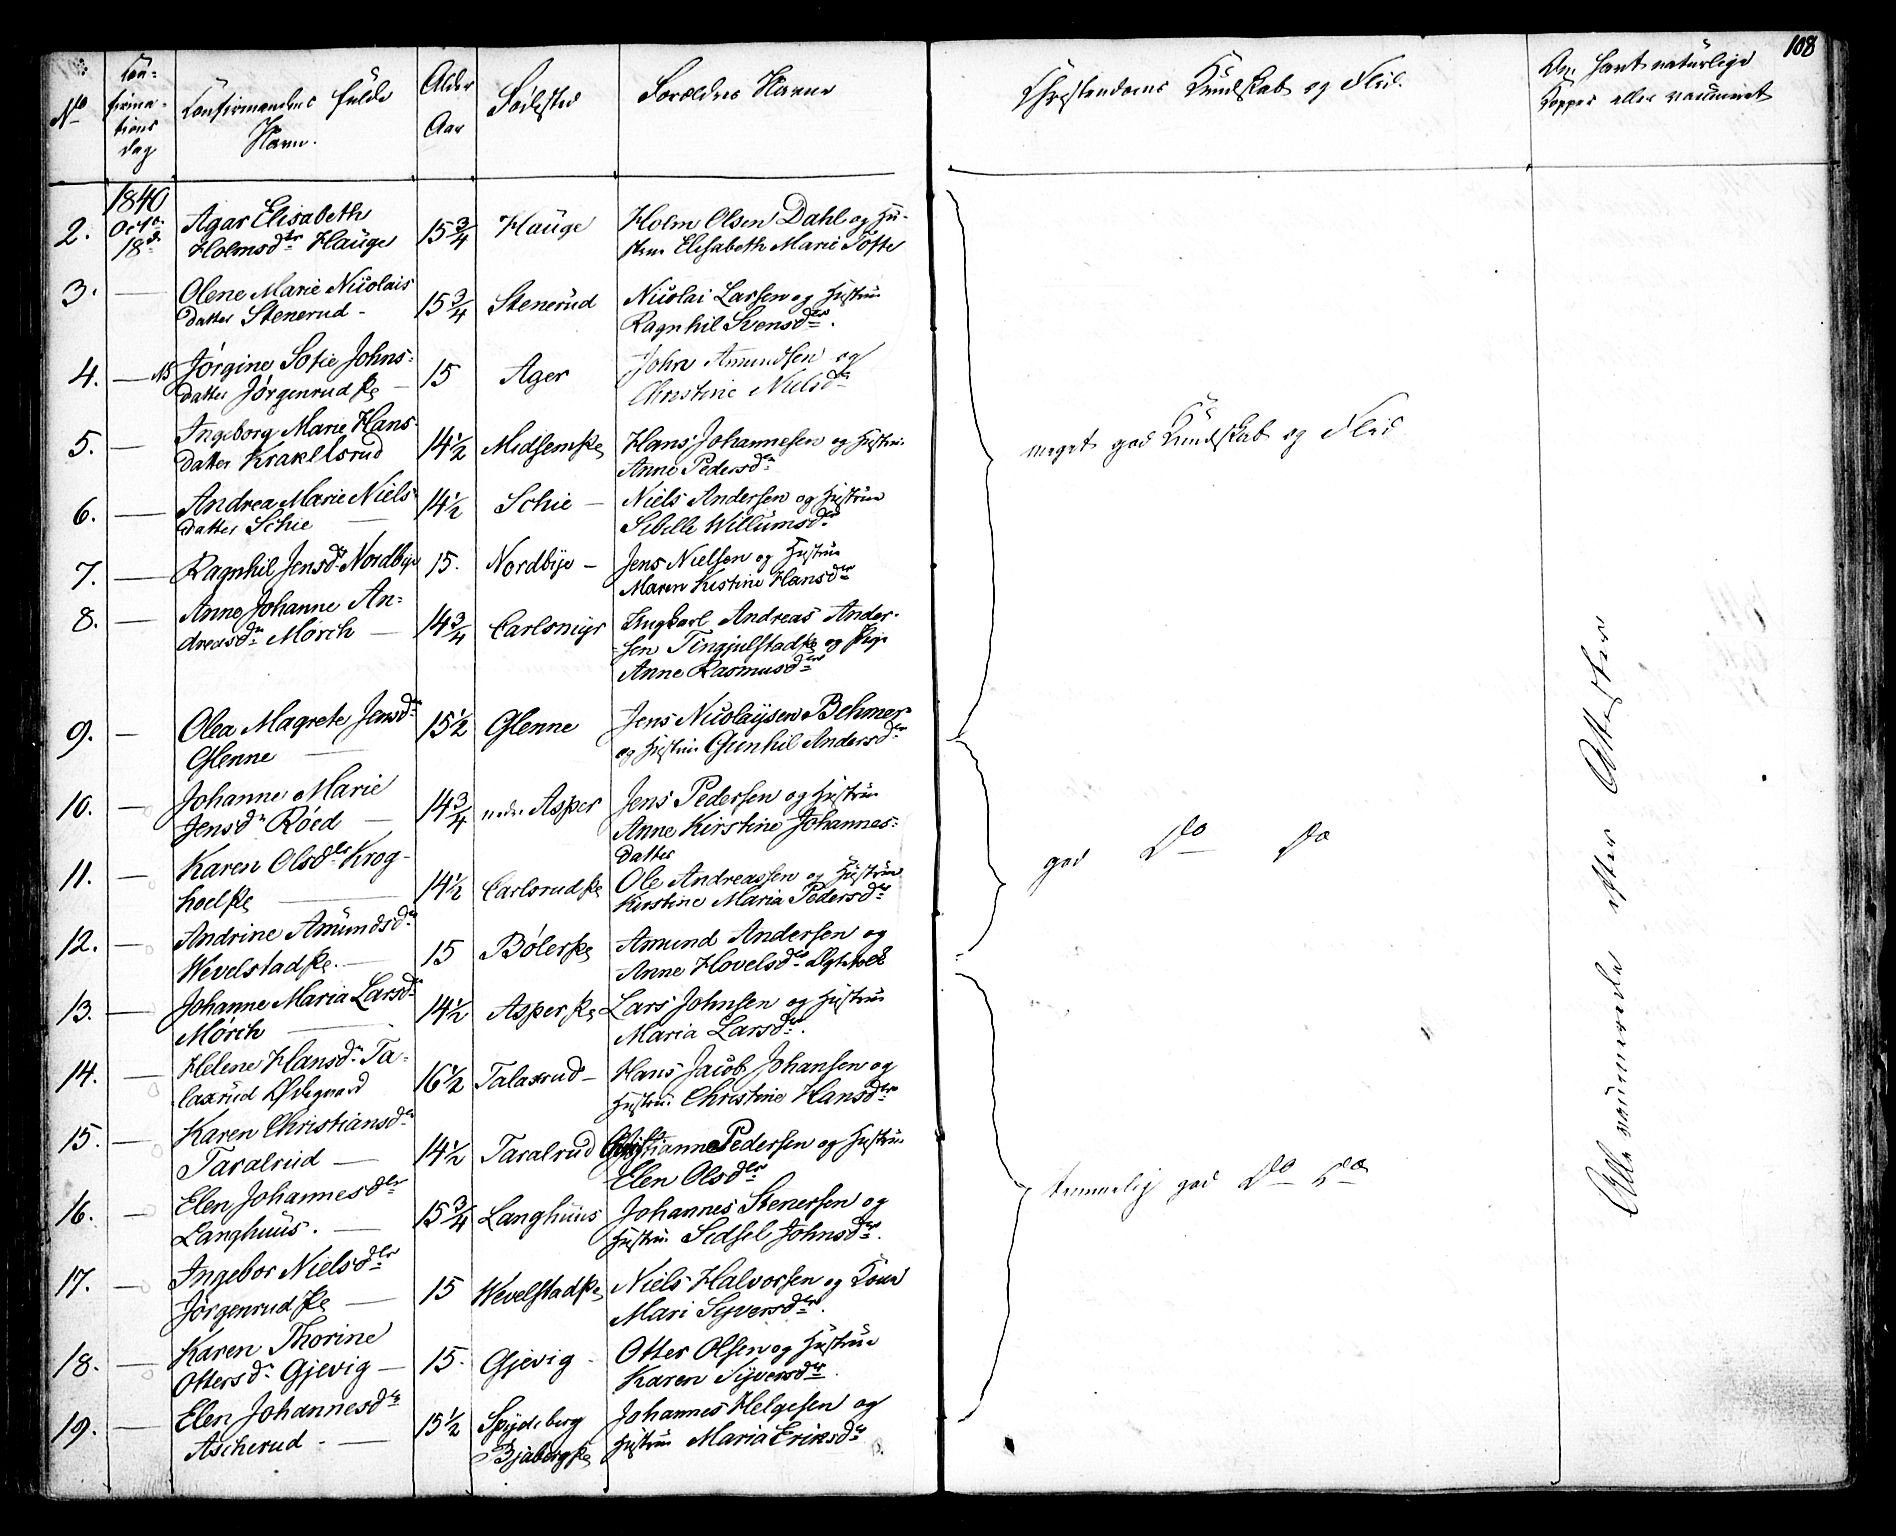 108
No
Con-
firma-
tions
dag
Confirmandens fulde
Navn.
Alder
Aar
Fødested
Forældres Navne
Christendoms Kundskab og Flid.
Om havt naturlige
Kopper eller vaccineret
1840
2.
Octbr
18de
Agar Elisabeth
Holmsdtr Hauge
15 3/4
Hauge
Holm Olsen Dahl og Hu-
stru Elisabeth Marie Tofte
3. —
Olene Marie Nicolais
datter Stenerud -
15 3/4
Stenerud
Nicolai Larsen og Hustru
Ragnhil Svensdtr.
4. — NB
Jørgine Sofie Johns-
datter Jørgenrud
15
Ager
John Amundsen og
Christine Nielsdr
5. —
Ingeborg Marie Hans-
datter Krakelsrud
14 1/2
Hans Johannesen og Hustru
Anne Pedersdr
6. —
Andrea Marie Niels-
datter Schie —
14 1/2
Schie —
Niels Andersen og Hustrue
Sibille Willumsdr
7. —
Ragnhil Jensdr Nordbye
15.
Nordbye —
Jens Nielsen og Hustrue
Maren Kistine Hansdtr
8. —
Anne Johanne An-
dreasdr Mörch —
14 3/4
Carlsmyr
Ungkarl Andreas Ander-
sen og Pige
Anne Rasmusdtr
9. —
Olea Magrete Jensdr
Glenne —
15 1/2
Glenne
Jens Nicolaysen Behmer
og Hustrue Gunhil Andersdtr
10. —
Johanne Marie
Jensdr Röed —
14 3/4
nedr Asper
Jens Pedersen og Hustrue
Anne Kirstine Johannes-
datter
11. —
Karen Olsdtr Krog-
—
14 1/2
Carlsrud
Ole Andreassen og Hustrue
Kirstine Maria Pedersdr
12. —
Andrine Amundsdr
Wevelstad —
15
Böler
Amund Andersen og
Anne Hovelsdtr
13. —
Johanne Maria Larsdr
Mörch —
14 1/2
Asper
Lars Johnsen og Hustrue
Maria Larsdtr.
14. —
Helene Hansdr Ta-
laxrud
16 1/2
Talaxrud —
Hans Jacob Johansen og
Hustru Christine Hansdtr
15. —
Karen Christiansdr
Taralrud —
14 1/2
Taralrud
Pedersen og Hustrue
Elen Olsdtr
16. —
Elen Johannesdtr
Langhuus. —
15 3/4
Langhuus
Johannes Stenersen og
Hustru Sidsel Johnsdtr.
17. —
Ingebor Nielsdtr
Jörgenrud —
15
Wevelstad
Niels Halvorsen og Kone
Mari Syversdtr.
18. —
Karen Thorine
Ottersdr Gjevig —
15.
Gjevig -
Otter Olsen og Hustrue
Karen Syversdtr
19. —
Elen Johannesdtr
Ascherud - —
15 1/2
Spydeberg
Johannes Helgesen og
Hustrue Maria Eriksdr
meget god Kundskab og Flid
god Do Do
temmelig god Do Do
Alle vaccinerede efter Attester